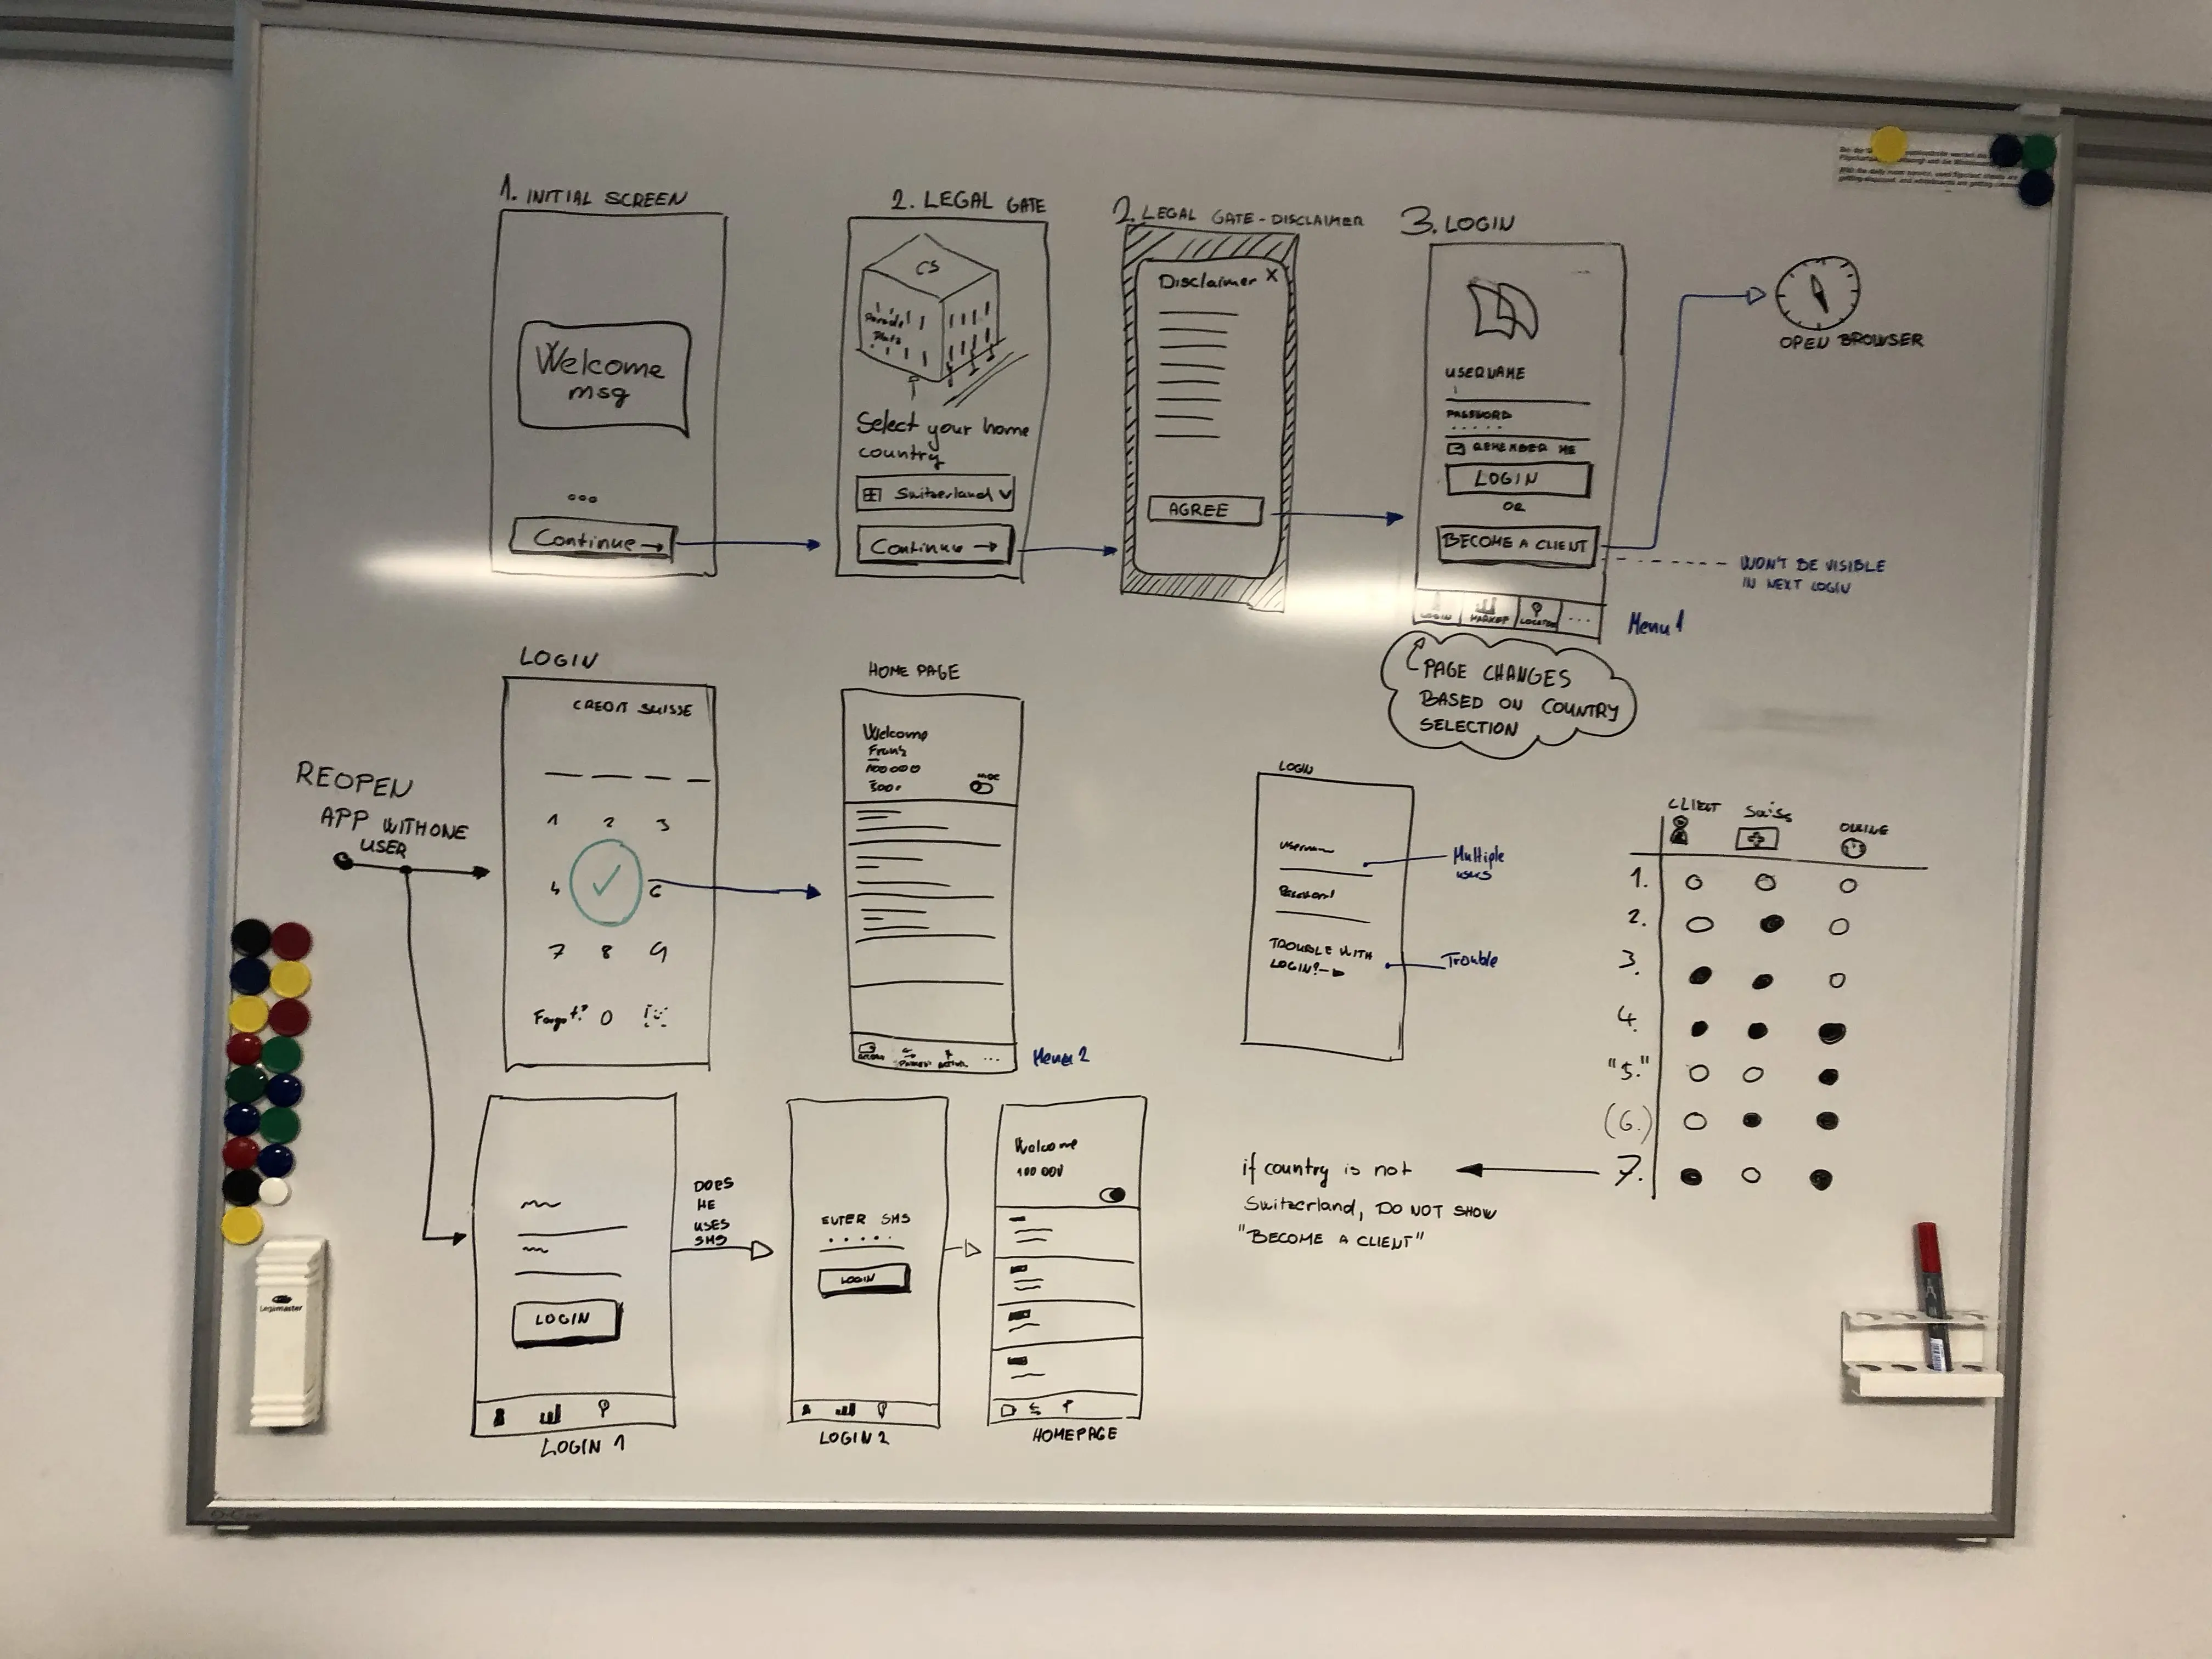 1. INITIAL SCREEN
Welcome
msg
Continue →
2. LEGAL GATE
CS
Parade
Platz
Select your home
country
Switzerland
Continue →
2. LEGAL GATE - DISCLAIMER
Disclaimer X
AGREE
3. LOGIN
USERNAME
PASSWORD
REMEMBER ME
LOGIN
OR
BECOME A CLIENT
LOGIN MARKET ...
Menu 1
OPEN BROWSER
WON'T BE VISIBLE
IN NEXT LOGIN
PAGE CHANGES
BASED ON COUNTRY
SELECTION
REOPEN
APP WITH ONE
USER
LOGIN
CREDIT SUISSE
1 2 3
4 6
7 8 9
Forgot? 0
HOME PAGE
Welcome
Franz
100000
...
Menu 2
LOGIN
Password
TROUBLE WITH
LOGIN?
Multiple
Trouble
CLIENT Swiss ONLINE
1.
2.
3.
4.
"5."
(6.)
7.
if country is not
Switzerland, DO NOT SHOW
"BECOME A CLIENT"
LOGIN
LOGIN 1
DOES
HE
USES
SMS
ENTER SMS
LOGIN
LOGIN 2
Welcome
HOMEPAGE
Legamaster